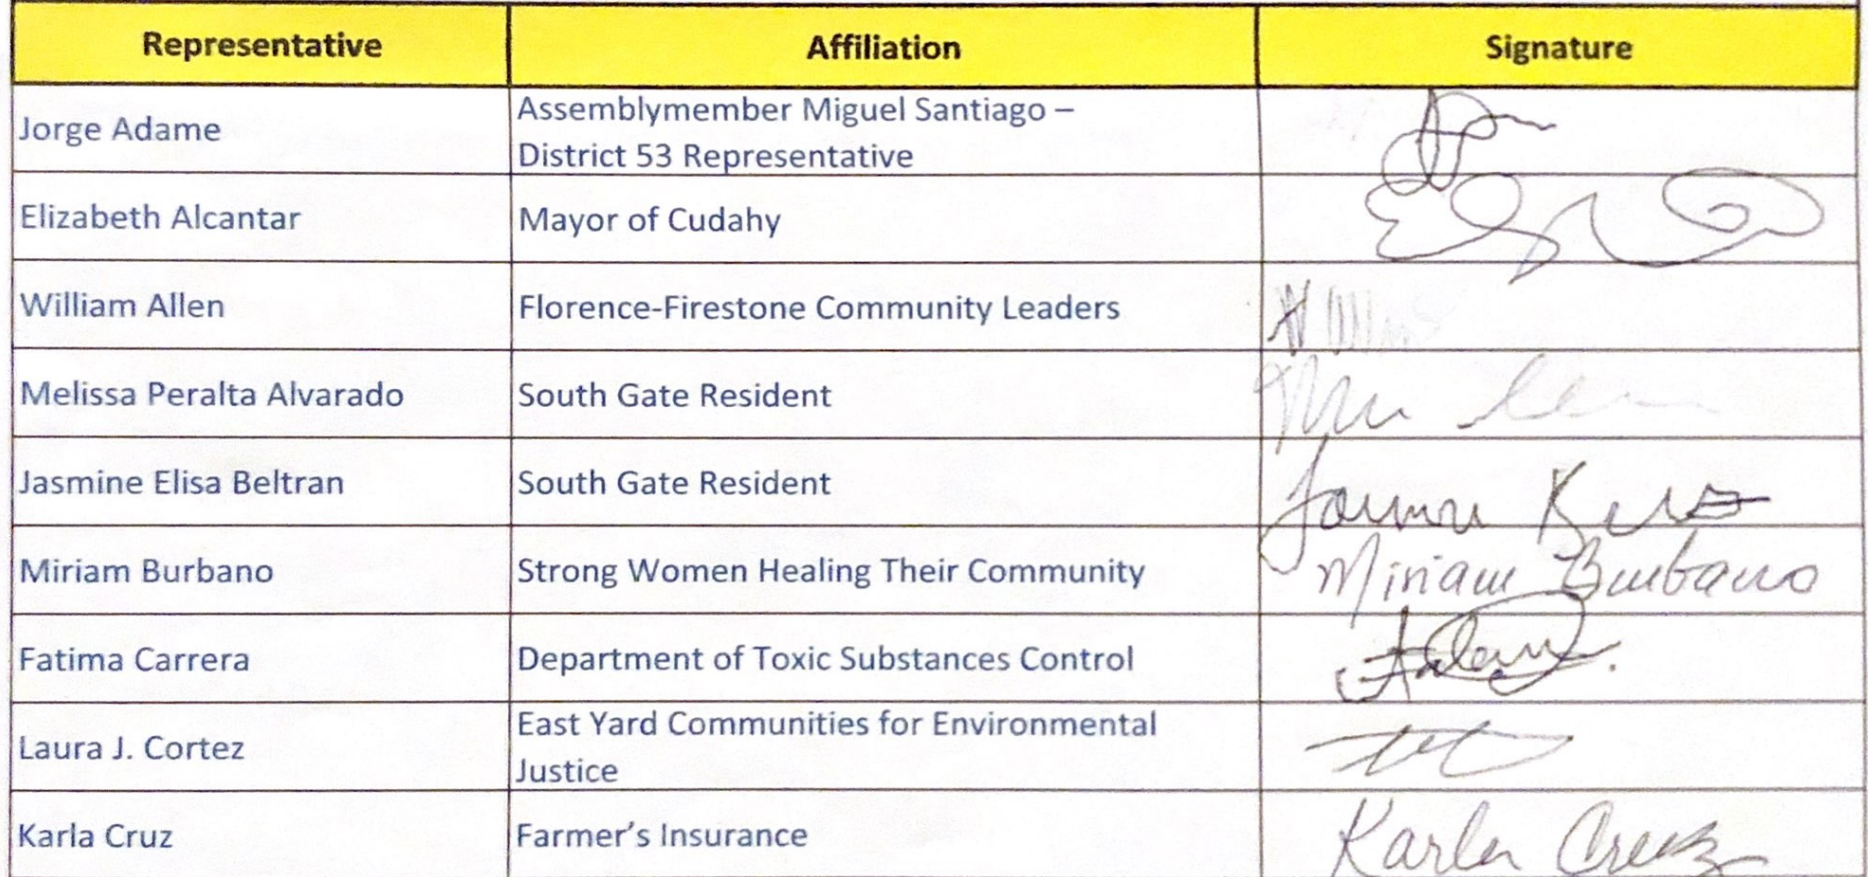 Representative Affiliation Signature
Jorge Adame
Assemblymember Miguel Santiago –
District 53 Representative
Elizabeth Alcantar Mayor of Cudahy
William Allen Florence-Firestone Community Leaders
Melissa Peralta Alvarado South Gate Resident
Jasmine Elisa Beltran South Gate Resident
Miriam Burbano Strong Women Healing Their Community Miriam Burbano
Fatima Carrera Department of Toxic Substances Control
Laura J. Cortez
East Yard Communities for Environmental
Justice
Karla Cruz Farmer’s Insurance Karla Cruz